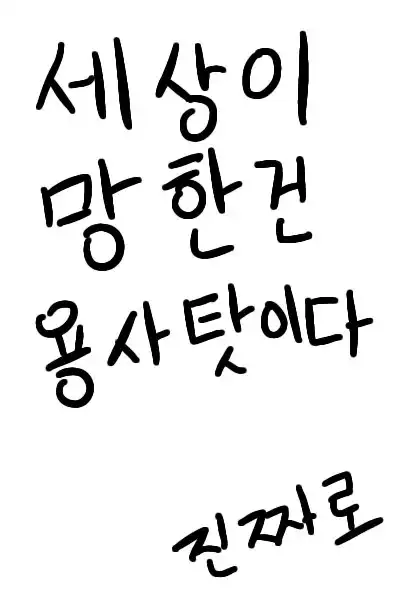 세상이
망한건
용사탓이다
진짜로